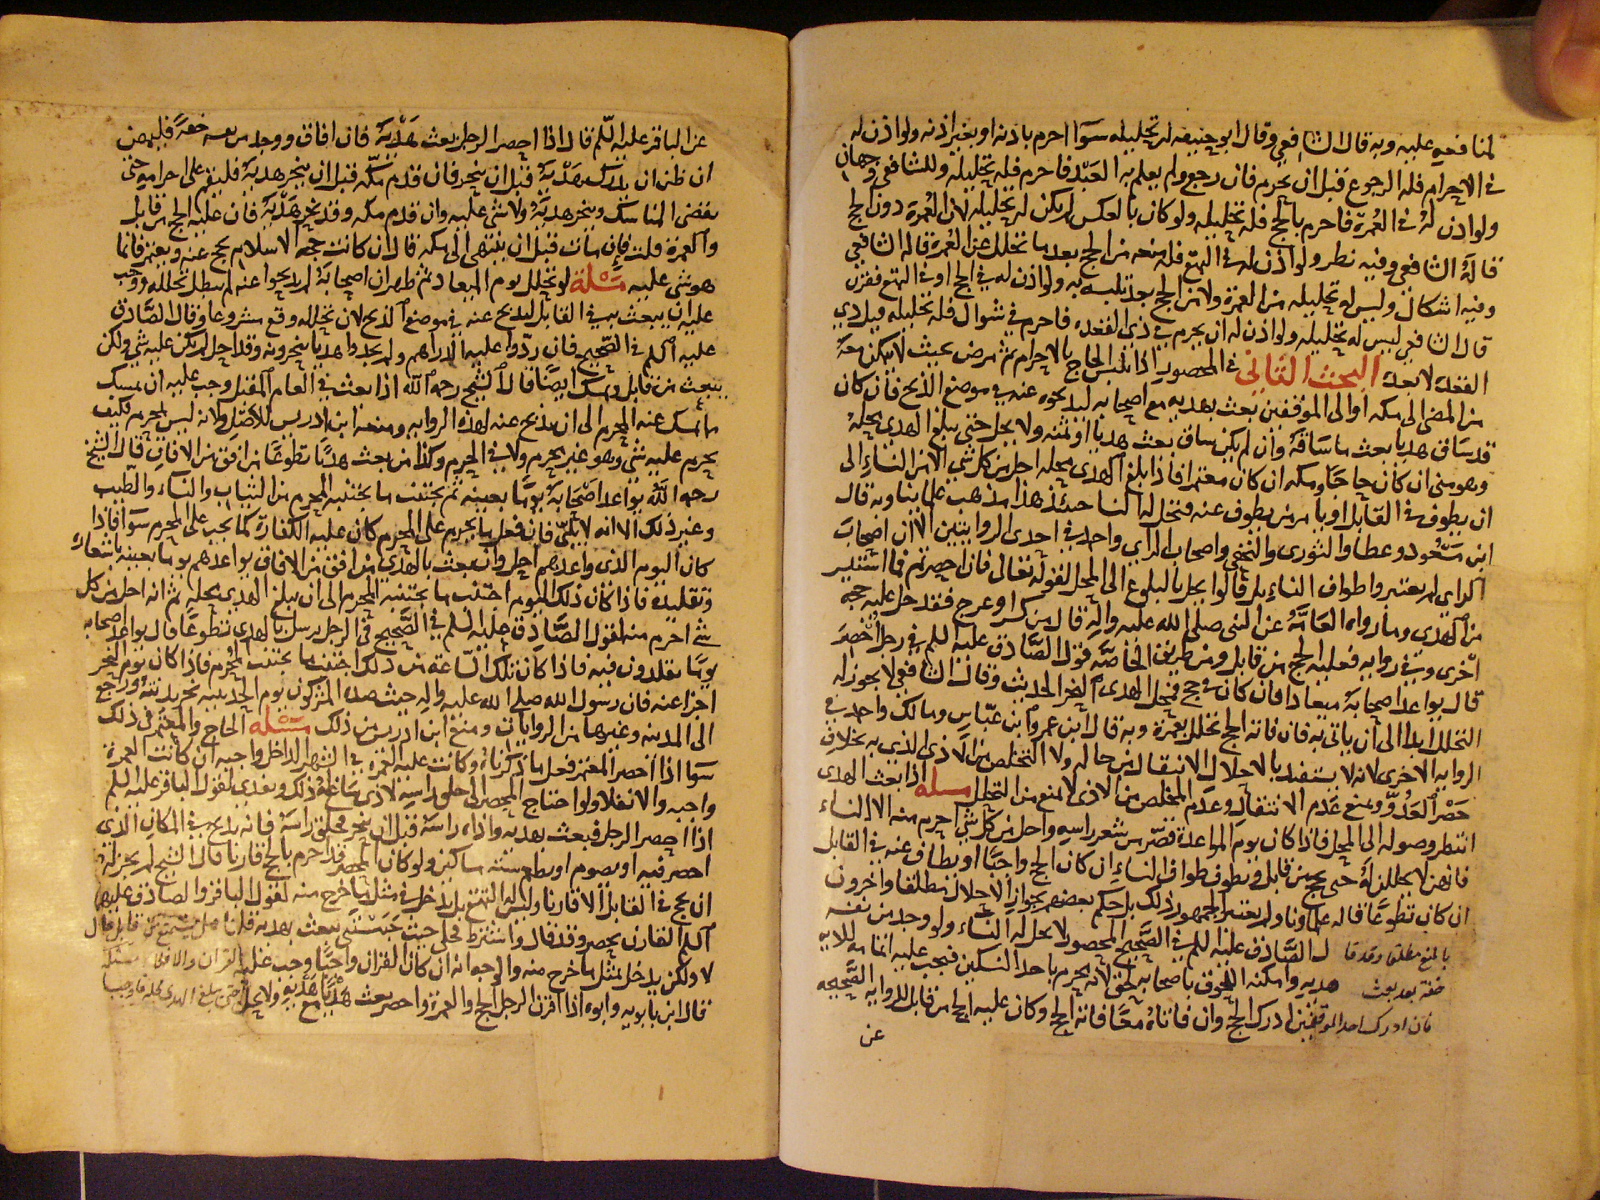 لمنافعه عليه وبه قال الشافعي وقال ابو حنيفه له تحليله سوآا احرم باذنه او بغير اذنه ولو اذن له
في الاحرام فله الرجوع قبل ان يحرم فان رجع ولم يعلم به العبد فاحرم فله تحليله وللشافعي وجهان
ولو اذن له في العمرة فاحرم بالحج فله تحليله ولو كان بالعكس لم يكن له تحليله لان العمرة دون الحج
قاله الشافعي وفيه نظر ولو اذن له في التمتع فله منعه من الحج بعد ما تحلل عن العمرة قاله الشافعي
وفيه اشكال وليس له تحليله من العمرة ولا من الحج بعد تلبسه به ولو اذن له في الحج او في التمتع فقرن
قال الشافعي ليس له تحليله ولو اذن له ان يحرم في ذي القعده فاحرم في شوال فله تحليله قبل ذي
القعدة لا بعده البحث الثاني في المحصور اذا تلبس الحاج بالاحرام ثم مرض بحيث لا يتمكن معه
من المضي الى مكه او الى الموقفين بعث بهديه مع اصحابه ليذبحوه عنه في موضع الذبح فان كان
قد ساق هديا بعث ما ساقه وان لم يكن ساق بعث هديا او ثمنه ولا يحل حتى يبلغ الهدي محله
وهو منى ان كان حاجا ومكه ان كان معتمرا فاذا بلغ الهدي محله احل من كل شي الا من النساء الى
ان يطوف في القابل او يامر من يطوف عنه فتحل له النسا حينئذ هذا مذهب علمائنا وبه قال
ابن مسعود وعطا والثوري والنخعي واصحاب الراي واحمد في احدى الروايتين الا ان اصحاب
الراي لم يعتبروا طواف النساء بل قالوا يحل بالبلوغ الى المحل لقوله تعالى فان احصرتم فما استيسر
من الهدي وما رواه العامة عن النبي صلى الله عليه واله قال من كسر او عرج فقد حل عليه حجه
اخرى وفي روايه فعليه الحج من قابل ومن طريق الخاصه قول الصادق عليه السلم في رجل احصر
قال يواعد اصحابه ميعادا فان كان في حج فمحل الهدي النحر الحديث وقال الشافعي لا يجوز له
التحلل ابدا الى ان ياتي به فان فاته الحج تحلل بعمرة وبه قال ابن عمر وابن عباس ومالك واحمد في
الروايه الاخرى لانه لا يستفيد بالاحلال الانتقال من حاله ولا التخلص من الاذى الذي به بخلاف
حصر العدو ونمنع عدم الانتقال وعدم التخلص من الاذى لا يمنع من التحلل مسله اذا بعث الهدي
انتظر وصوله الى المحل فاذا كان يوم المواعدة قصر من شعر راسه واحل من كل شي احرم منه الا النساء
فانهن لا يحللن له حتى يحج من قابل ويطوف طواف النساء ان كان الحج واجبا او يطاف عنه في القابل
ان كان تطوعا قاله علماونا ولم يعتبر الجمهور ذلك بل حكم بعضهم بجواز الاحلال مطلقا واخرون
بالمنع مطلقا وقد قال الصادق عليه السلم في الصحيح المحصور لا يحل له النساء ولو وجد من نفسه
خفة بعد بعث هديه وامكنه اللحوق باصحابه لحق لانه محرم باحد النسكين فيجب عليه اتمامه للايه
فان ادرك احد الموقفين ادرك الحج وان فاتاه معا فاته الحج وكان عليه الحج من قابل للروايه الصحيحه
عن
عن الباقر عليه السلم قال اذا احصر الرجل بعث بهديه فان افاق ووجد من نفسه خفة فليمض
ان ظن ان يدرك بهديه قبل ان ينحر فان قدم مكه قبل ان ينحر هديه فليقم على احرامه حتى
يقضي المناسك وينحر هديه ولا شي عليه وان قدم مكه وقد نحر هديه فان عليه الحج من قابل
والعمرة قلت فان مات قبل ان ينتهي الى مكه قال ان كانت حجه الاسلام يحج عنه ويعتمر فانما
هو شي عليه مسلة لو تحلل يوم الميعاد ثم ظهر ان اصحابه لم يذبحوا عنه لم يبطل تحلله ووجب
عليه ان يبعث به في القابل ليذبح عنه في موضع الذبح لان تحلله وقع مشروعا وقال الصادق
عليه السلم في الصحيح فان ردوا عليه الدراهم ولم يجدوا هديا ينحرونه وقد احل لم يكن عليه شي ولكن
يبعث من قابل ويمسك ايضا قال الشيخ رحمه الله اذا بعث في العام المقبل وجب عليه ان يمسك
مما يمسك عنه المحرم الى ان يذبح عنه لهذه الروايه ومنعه ابن ادريس للاصل ولانه ليس بمحرم فكيف
يحرم عليه شي وهو غير محرم ولا في الحرم وكذا من بعث هديا تطوعا من افق من الافاق قال الشيخ
رحمه الله يواعد اصحابه يوما بعينه ثم يجتنب ما يجتنبه المحرم من الثياب والنساء والطيب
وغير ذلك الا انه لا يلبي فان فعل ما يحرم على المحرم كان عليه الكفارة كما يجب على المحرم سوآ فاذا
كان اليوم الذي واعدهم احل وان بعث بالهدي من افق من الافاق يواعدهم يوما بعينه باشعاره
وتقليده فاذا كان ذلك اليوم اجتنب ما يجتنبه المحرم الى ان يبلغ الهدي محله ثم انه احل من كل
شي احرم منه لقول الصادق عليه السلم في الصحيح في الرجل يرسل بالهدي تطوعا قال يواعد اصحابه
يوما يقلدون فيه فاذا كان تلك الساعة من ذلك اجتنب ما يجتنب المحرم فاذا كان يوم النحر
اجزا عنه فان رسول الله صلى الله عليه واله حيث صده المشركون يوم الحديبيه نحر بدنته ورجع
الى المدينه وغيرها من الروايات ومنع ابن ادريس من ذلك مسله الحاج والمعتمر في ذلك
سوا اذا احصر المعتمر فعل ما ذكرناه وكانت عليه العمره في الشهر الداخل واجبه ان كانت العمرة
واجبه والا نفلا ولو احتاج المحصر الى حلق راسه لاذى ساغ له ذلك ويفدي لقول الباقر عليه السلم
اذا احصر الرجل فبعث بهديه واذاه راسه قبل ان ينحر فحلق راسه فانه يذبح في المكان الذي
احصر فيه او يصوم او يطعم سته مساكين ولو كان المحصر قد احرم بالحج قارنا قال الشيخ لم يجز له
ان يحج في القابل الا قارنا وليس له التمتع بل يدخل في مثل ما خرج منه لقول الباقر والصادق عليهما
السلم القارن يحصر وقد قال واشترط فحلني حيث حبستني يبعث بهديه قلنا هل يتمتع من قابل قال
لا ولكن يدخل بمثل ما خرج منه والوجه انه ان كان القران واجبا وجب عليه القران والا فلا مسئله
قال ابن بابويه وابوه اذا اقرن الرجل الحج والعمرة واحصر بعث هديا مع هديه ولا يحل حتى يبلغ الهدي محله فاوجبا